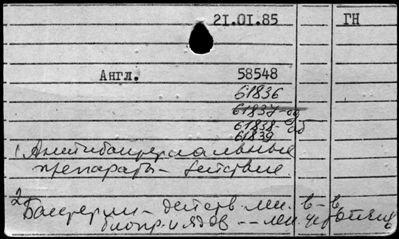 21.01.85 ГН
Англ. 58548
61836
61837-од
61838-об
61839
1 Антибактериальные
препараты - действие
2 Бактерии - действ. лек. в-в,
биопр. и ядов --